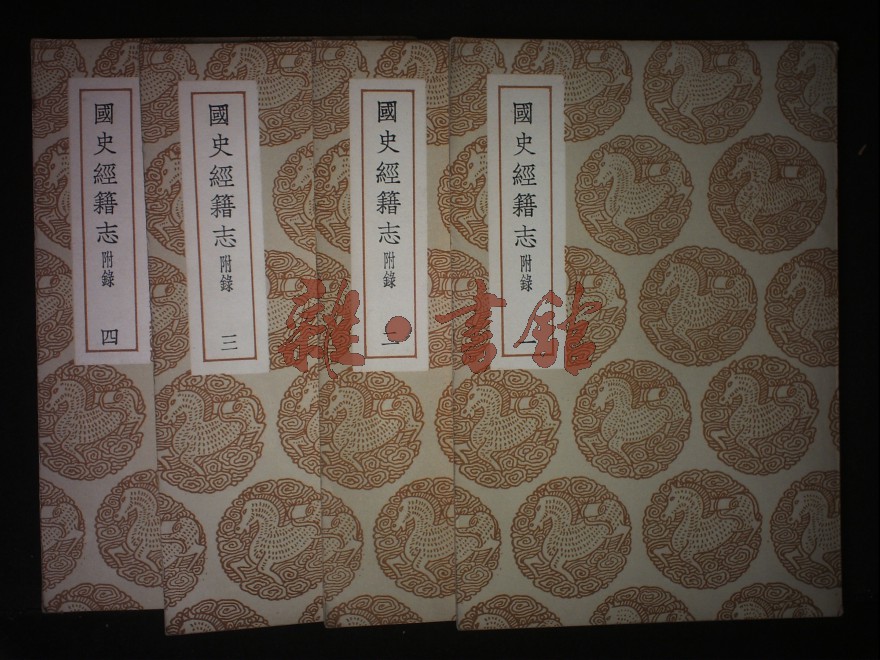 國史經籍志附錄
一
國史經籍志附錄
二
國史經籍志附錄
三
國史經籍志附錄
四
雜·書館